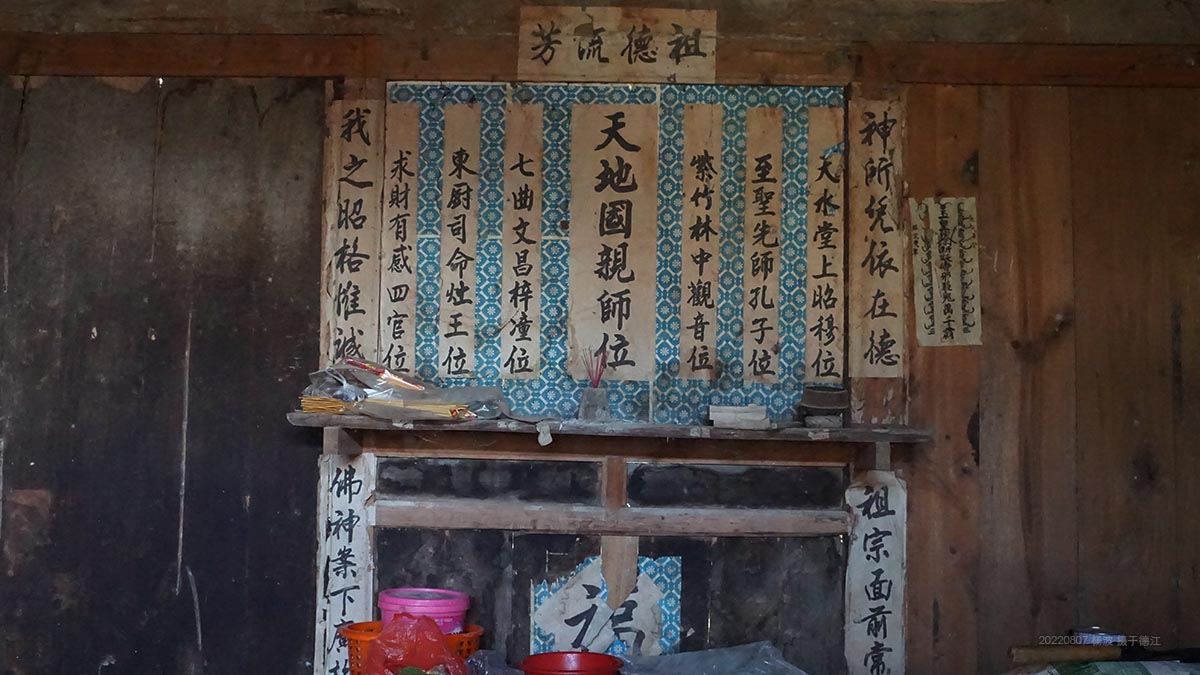 祖德流芳
神所凭依在德
天水堂上昭穆位
至聖先師孔子位
紫竹林中觀音位
天地國親師位
七曲文昌梓潼位
東厨司命灶王位
求財有感四官位
我之昭格惟誠
祖宗面前常
佛神案下廣
福
20220807 杨波 摄于德江